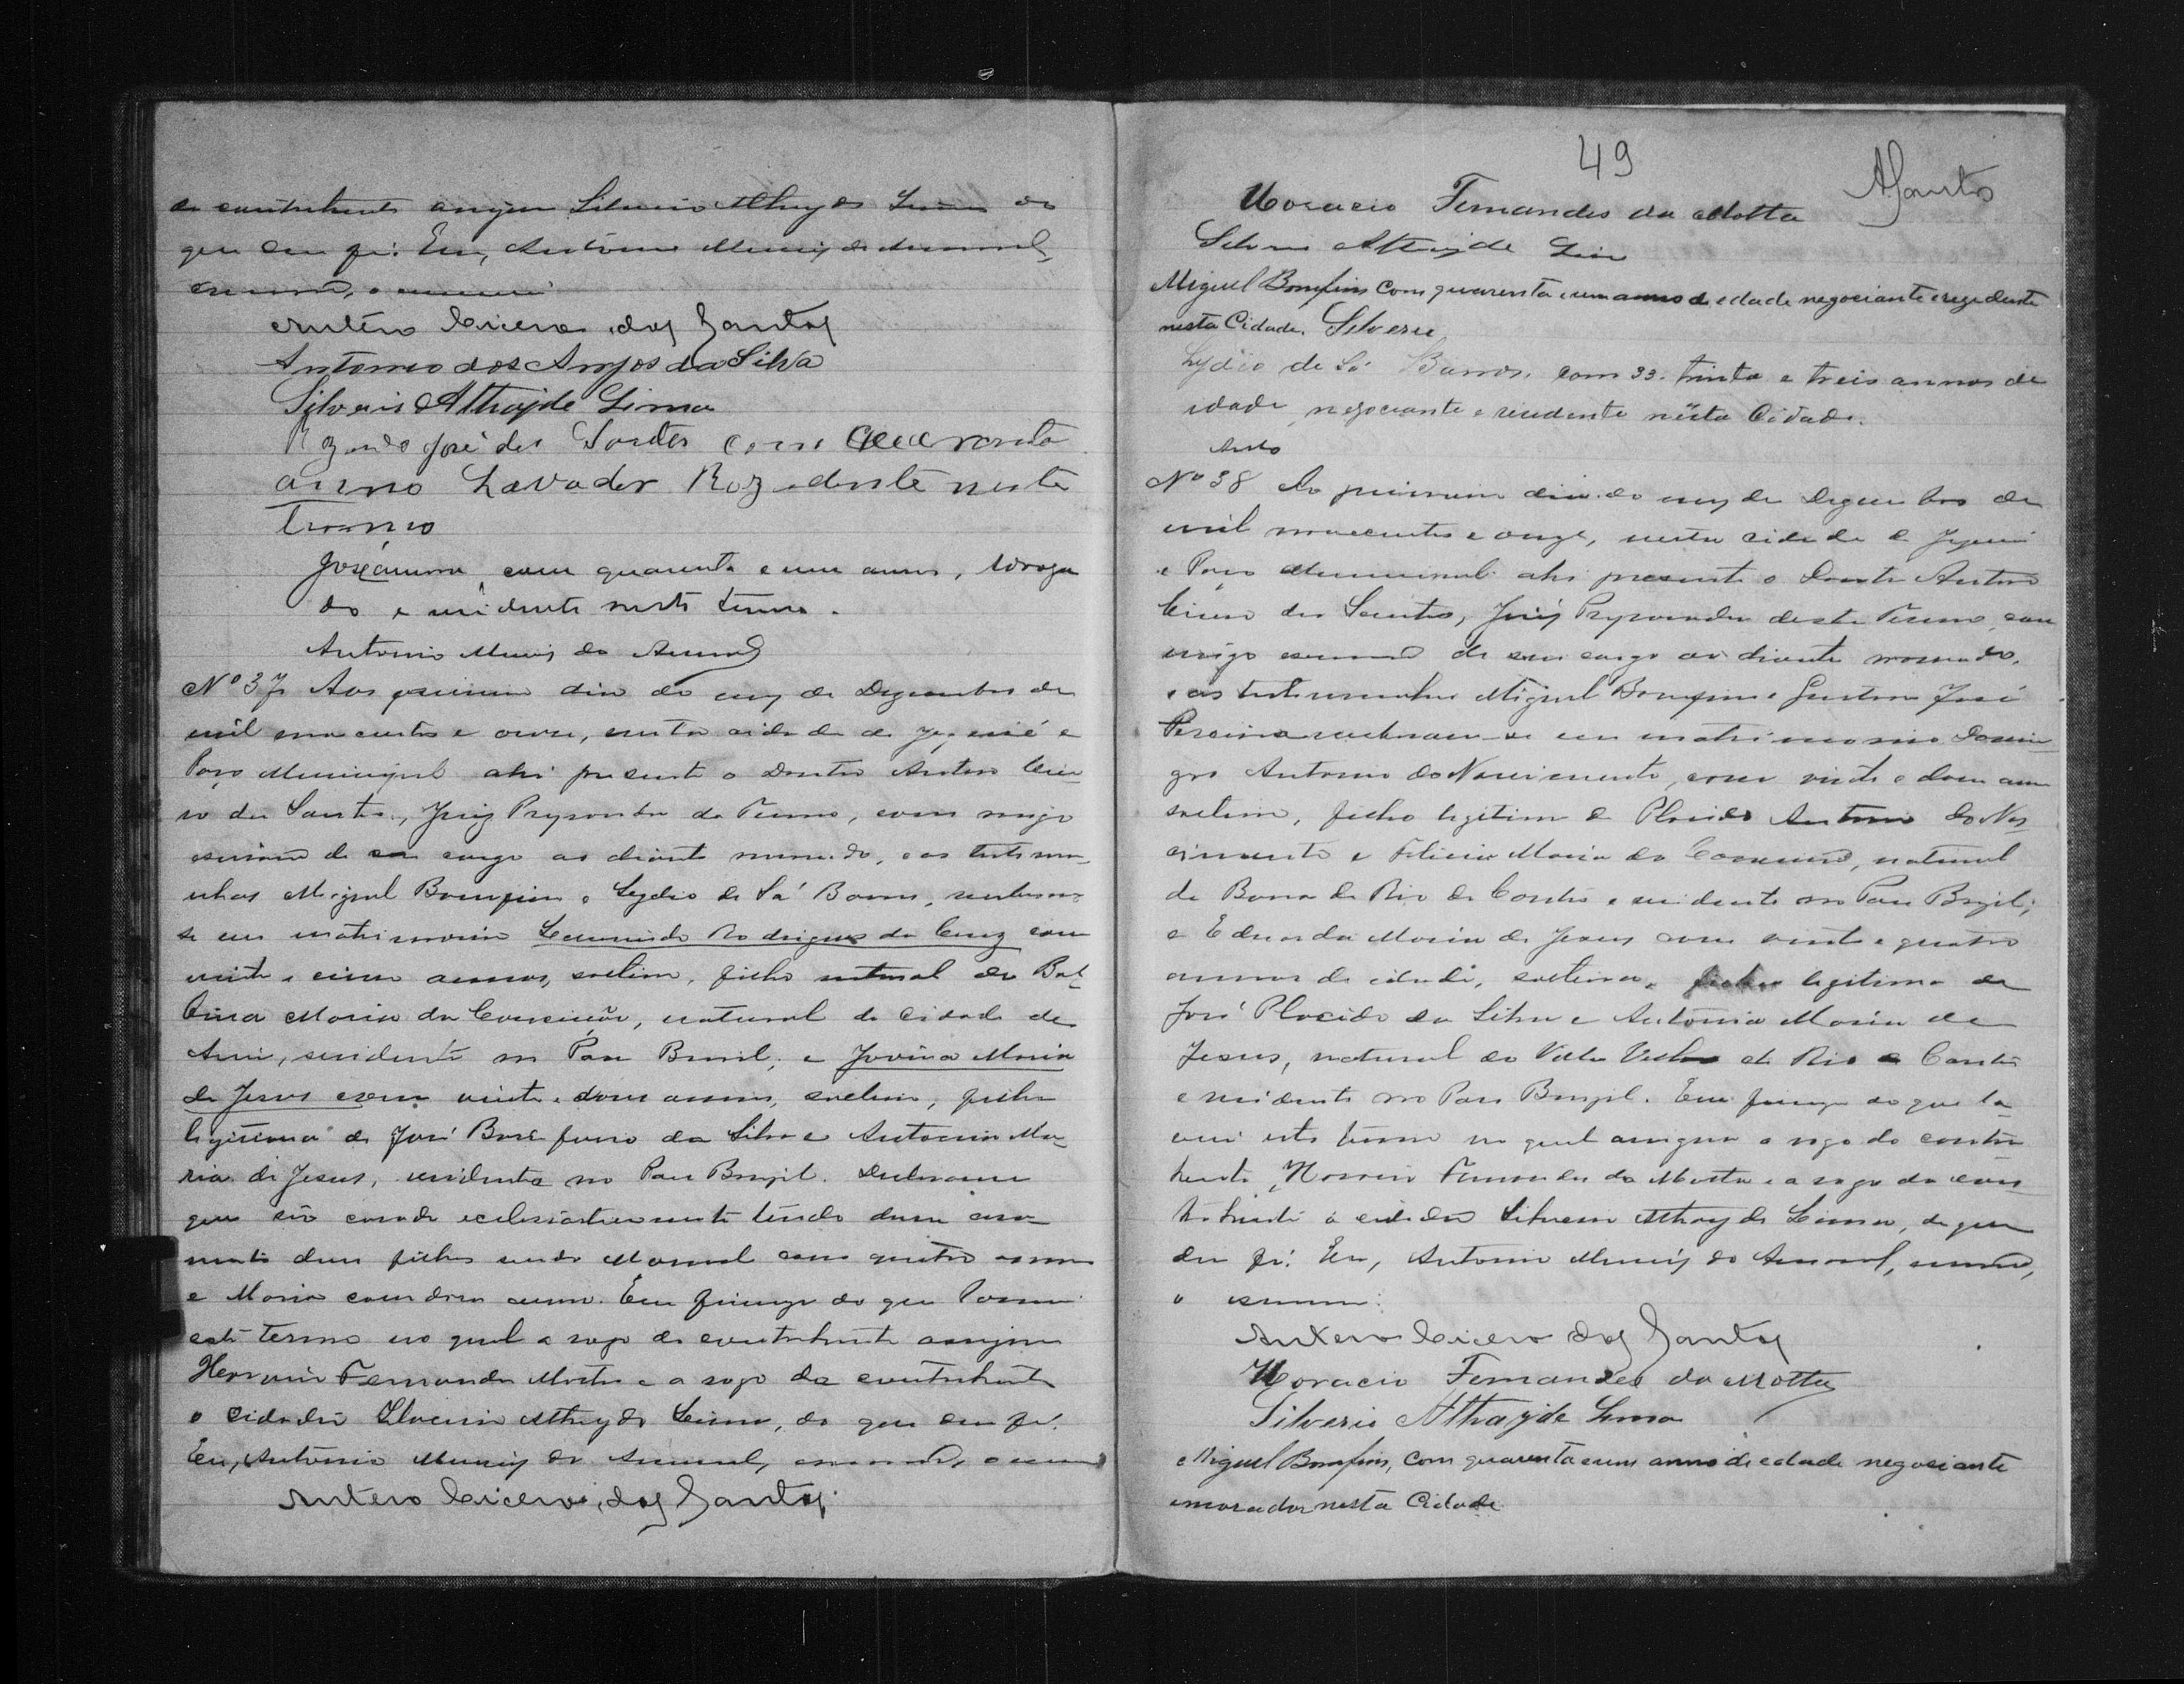 da contrahente assigna Silverio Athayde Lima do
que dou fé. Eu, Antonio Muniz do Amaral,
escrivão, o escrevi
Antero Cicero dos Santos
Antonio dos Anjos da Silva
Silverio Athayde Lima
José dos Santos com Quarenta
anno Lavador Rezedente neste
Termo
com quarenta e um annos,
do e residente neste termo.
Antonio Muniz do Amaral
Nº 37 Aos primeiro dia do mez de Dezembro de
mil novecentos e onze, nesta cidade de Jequié e
Paço Municipal ahi presente o Doutor Antero Cice
ro dos Santos, Juiz Preparador do Termo, com migo
escrivão de seu cargo ao diante nomeado, e as testemu
nhas Miguel Bomfim e Lydio de Sá Barros, receberam
se em matrimonio Rodrigues da Cruz com
vinte e cinco annos, solteiro, filho natural de Bal
bina Maria da Conceição, natural da Cidade de
residente no Pau Brasil; e Jovina Maria
de Jesus com vinte e dous annos, solteira, filha
legitima de José da Silva e Antonia Ma
ria de Jesus, residente no Pau Brazil. Declararam
que são casados ecclesiasticamente tendo
dous filhos sendo Manoel com quatro annos
e Maria com dous annos. Em firmeza do que lavrei
este termo no qual a rogo do contrahente assigna
Horacio Fernandes Motta e a rogo da contrahente
o cidadão Silverio Athayde Lima, do que dou fé.
Eu, Antonio Muniz do Amaral, escrivão, o escrevi
Antero Cicero dos Santos
49
ASantos
Horacio Fernandes da Motta
Silverio Athayde Lima
Miguel Bomfim com quarenta e um anno de edade negociante e rezedente
nesta Cidade. Silverio
Lydio de Sá Barros, com 33. trinta e treis annos de
idade, negociante e residente nesta Cidade.
Nº 38 Ao primeiro dia do mez de Dezembro de
mil novecentos e onze, nesta cidade de Jequié
e Paço Municipal ahi presente o Doutor Antero
Cicero dos Santos, Juiz Preparador deste Termo, com
migo escrivão de seu cargo ao diante nomeado,
e as testemunhas Miguel Bomfim e José
Pereira receberam-se em matrimonio Domin
gos Antonio do Nascimento, com vinte e dous annos
solteiro, filho legitimo de Placido Antonio do Nas
cimento e Felicia Maria da Conceição, natural
da Barra do Rio de Contas e residente no Pau Brazil;
e Eduarda Maria de Jesus com vinte e quatro
annos de idade, solteira, filha legitima de
José Placido da Silva e Antonia Maria de
Jesus, natural da Villa Velha do Rio de Contas
e residente no Pau Brazil. Em firmeza do que la
vrei este termo no qual assigna a rogo do contra
hente, Horacio Fernandes da Motta e a rogo da con
trahente o cidadão Silverio Athayde Lima, do que
dou fé. Eu, Antonio Muniz do Amaral, escrivão,
o escrevi.
Antero Cicero dos Santos
Horacio Fernandes da Motta
Silverio Athayde Lima
Miguel Bomfim, com quarenta e um anno de edade negociante
e morador nesta Cidade